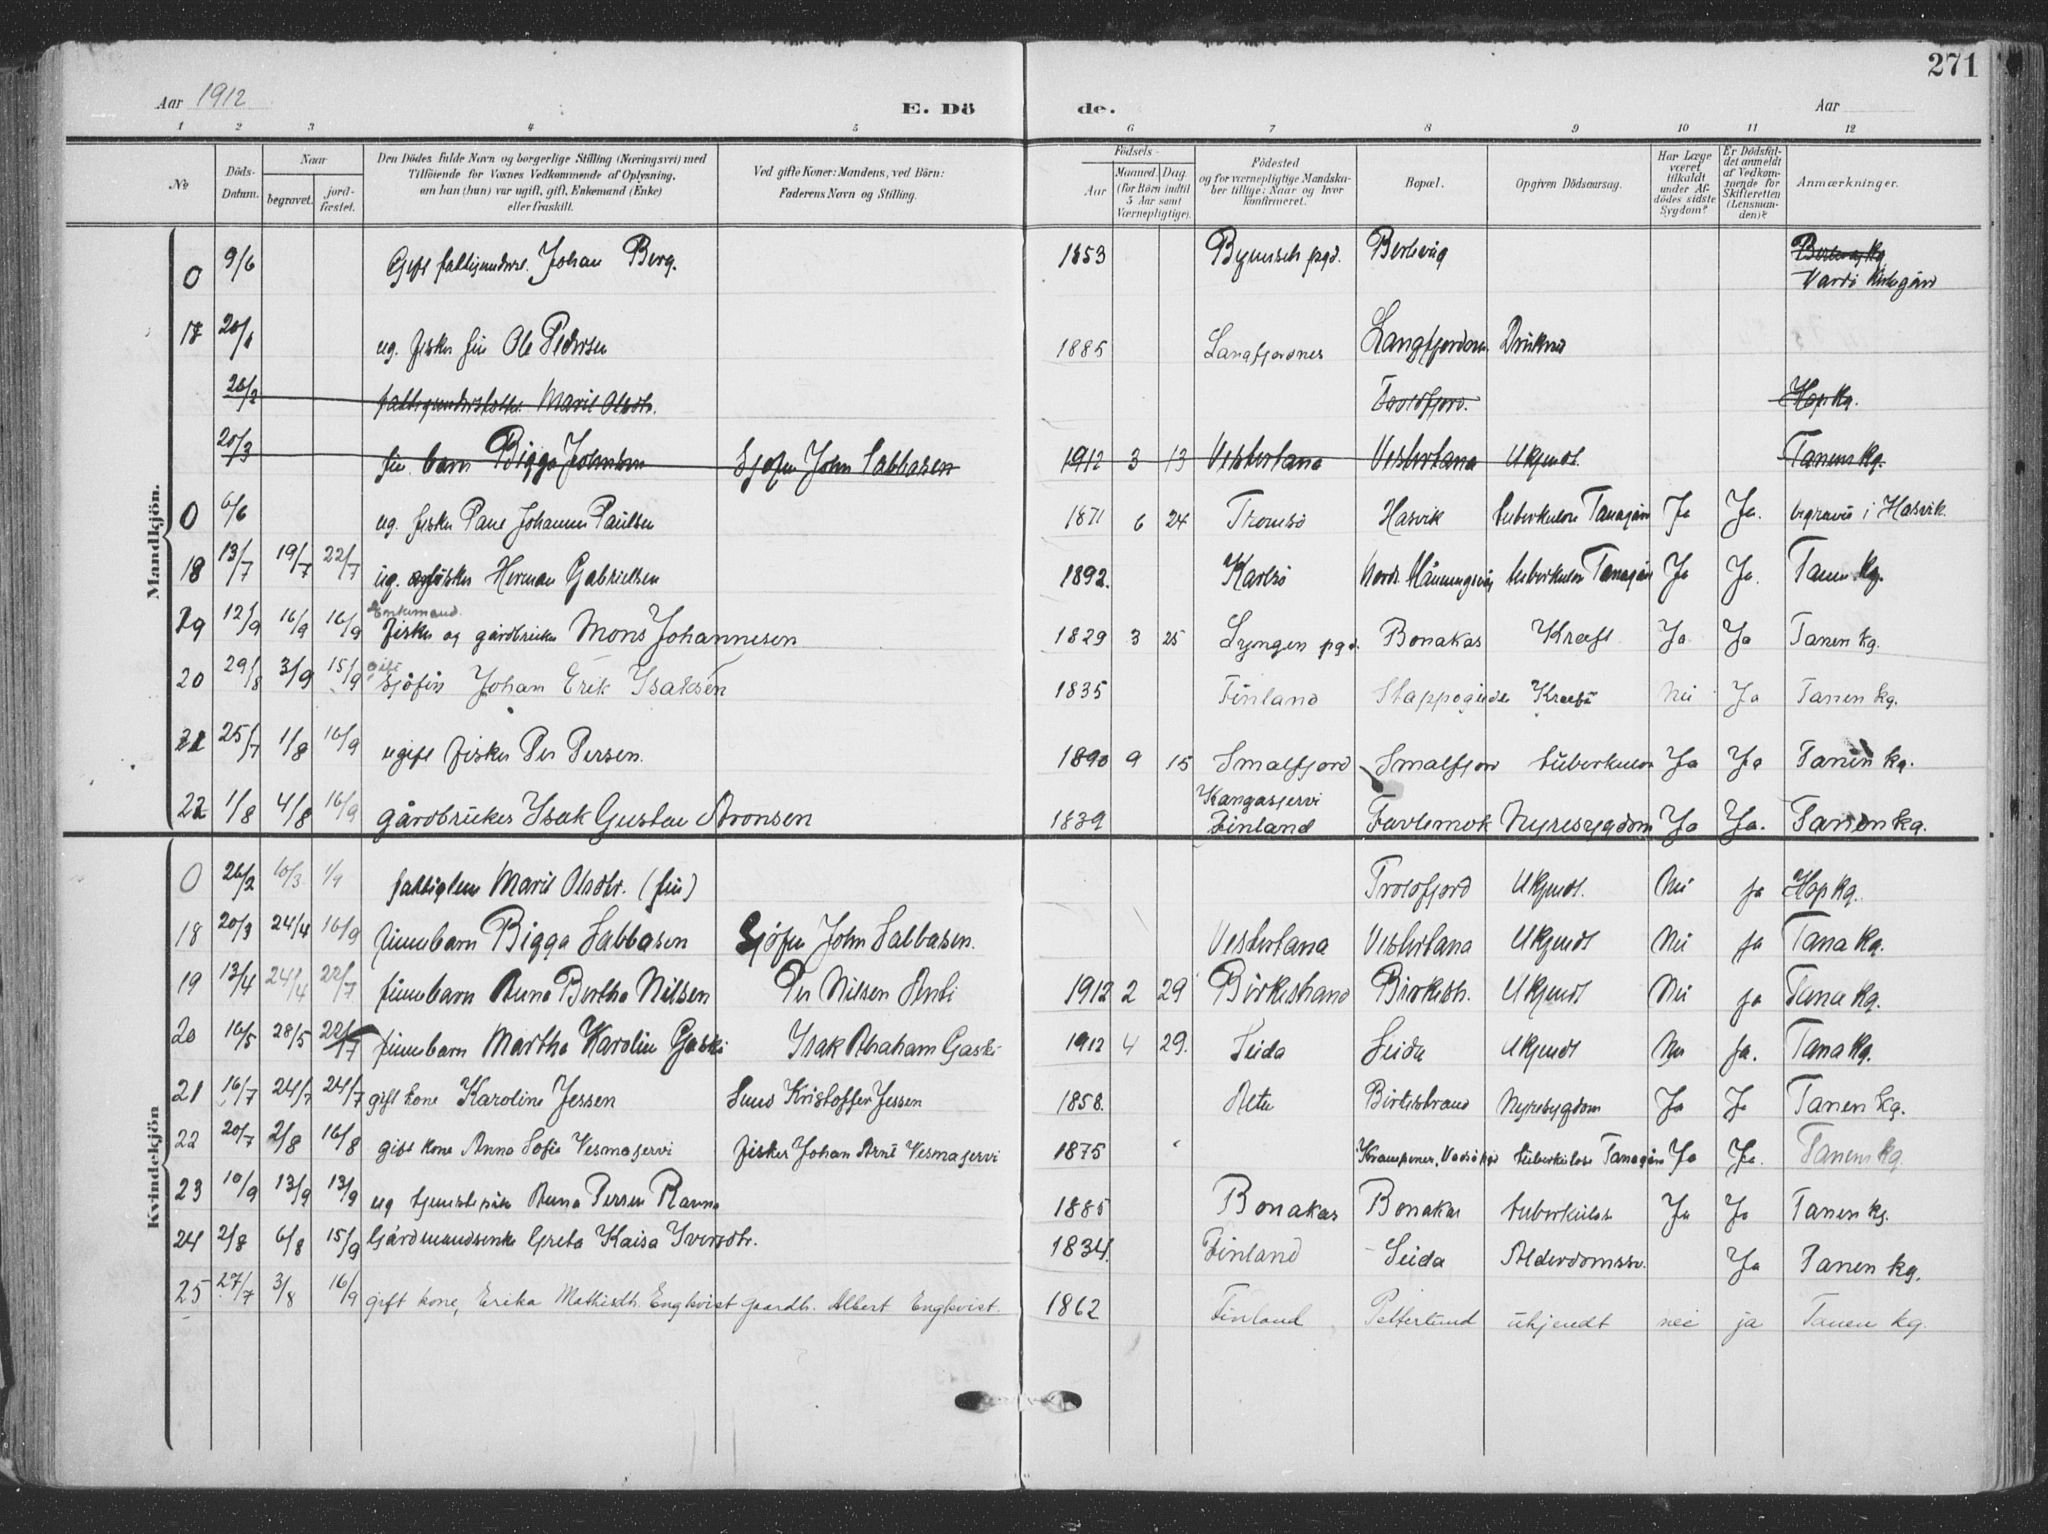 271
Aar 1912
E. Dö de.
Aar
1 2 3 4 5 6 7 8 9 10 11 12
No
Döds-Datum.
Naar
begravet.
jord-fæstet.
Den Dödes fulde Navn og borgerlige Stilling (Næringsvei) med
Tilföiende for Voxnes Vedkommende af Oplysning,
om han (hun) var ugift, gift, Enkemand (Enke)
eller fraskilt.
Ved gifte Koner: Mandens, ved Börn:
Faderens Navn og Stilling.
Födsels-
Aar
Maaned. Dag.
(for Börn indtil
5 Aar samt
Værnepligtige).
Födested
og for værnepligtige Mandska-
ber tillige: Naar og hvor
konfirmeret.
Bopæl.
Opgiven Dödsaarsag.
Har Læge
været
tilkaldt
under Af-
dödes sidste
Sygdom?
Er Dödsfal-
det anmeldt
af Vedkom-
mende for
Skifteretten
(Lensman-
den)?
Anmærkninger.
Mandkjön.
0 9/6 Gift fattigunders. Johan Berg. 1853 pgd. Berlevåg Vardö
17 20/6 ug. fisker fin Ole Pedersen 1885 Langfjordnes Langfjorden Druknet
26/2 Marit Olsdtr. Trollfjord. Hop kg.
20/3 fin. barn Bigga Johnsen Sjöfin John Sabbasen 1912 3 13 Vestertana Vestertana Ukjendt. Tanens kg.
0 6/6 ug. fisker Johannes Paulsen 1871 6 24 Tromsö Hasvik tuberkulose Tanagår Ja Ja. begravet i Hasvik
18 13/7 19/7 22/7 ug. fisker Herman Gabrielsen 1892. Karlsö tuberkulose Tanagår Ja Ja. Tanen kg.
19 12/9 16/9 16/9 Enkemand. Fisker og gårdbruker Mons Johannesen 1829 3 25 Lyngen pgd. Bonakas Kræft. Ja. Ja Tanen kg.
20 29/8 3/9 15/9 gift Sjöfin Johan Erik Isaksen 1835 Finland Stappogiedde Kræft Nei Ja Tanen kg.
21 25/7 1/8 16/9 ugift fisker Per Persen. 1890 9 15 Smalfjord Smalfjord tuberkulose Ja Ja Tanen kg.
22 1/8 4/8 16/9 gårdbruker Isak Gustav Aronsen 1839 Kangasjervi Finland Favlemok Nyresygdom Ja Ja. Tanen kg.
Kvindekjön
0 26/2 10/3 1/9 fattiglem Marit Olsdtr. (fin) Trollfjord Ukjendt. Nei ja Hop kg.
18 20/3 24/4 16/9 finnebarn Bigga Sabbasen Sjöfin John Sabbasen. Vestertana Vestertana Ukjendt Nei ja Tana kg.
19 13/4 24/4 22/7 finnebarn Anna Bertha Nilsen Per Nilsen 1912 2 29 Birkestrand Birkestr. Ukjendt Nei ja Tana kg.
20 16/5 28/5 22/7 finnebarn Martha Karoline Gaski Isak Abraham Gaski 1912 4 29. Seida Seida Ukjendt Nei ja. Tana kg.
21 16/7 24/7 24/7 gift kone Karoline Jessen Kristoffer Jessen 1858. Birkestrand Nyresygdom Ja Ja Tanen kg.
22 20/7 2/8 16/8 gift kone Anna Sofie Vesmajervi fisker Johan Arnt Vesmajervi 1875 Krampenes, Vadsö pgd tuberkulose Tanagår Ja Ja. Tanens kg.
23 10/9 13/9 13/9 ug tjenestepike Anna Persen Ravna 1885 Bonakas Bonakas tuberkulose Ja Ja Tanen kg.
24 2/8 6/8 15/9 Gårdmandsenke Greta Kaisa Iversdtr. 1834. Finland Seida Alderdomssv. Ja Tanen kg.
25 27/7 3/8 16/9 gift kone, Erika Mathisdtr. Engkvist gaardbr. Albert Engkvist. 1862 Finland Polterlund ukjendt nei ja Tanen kg.